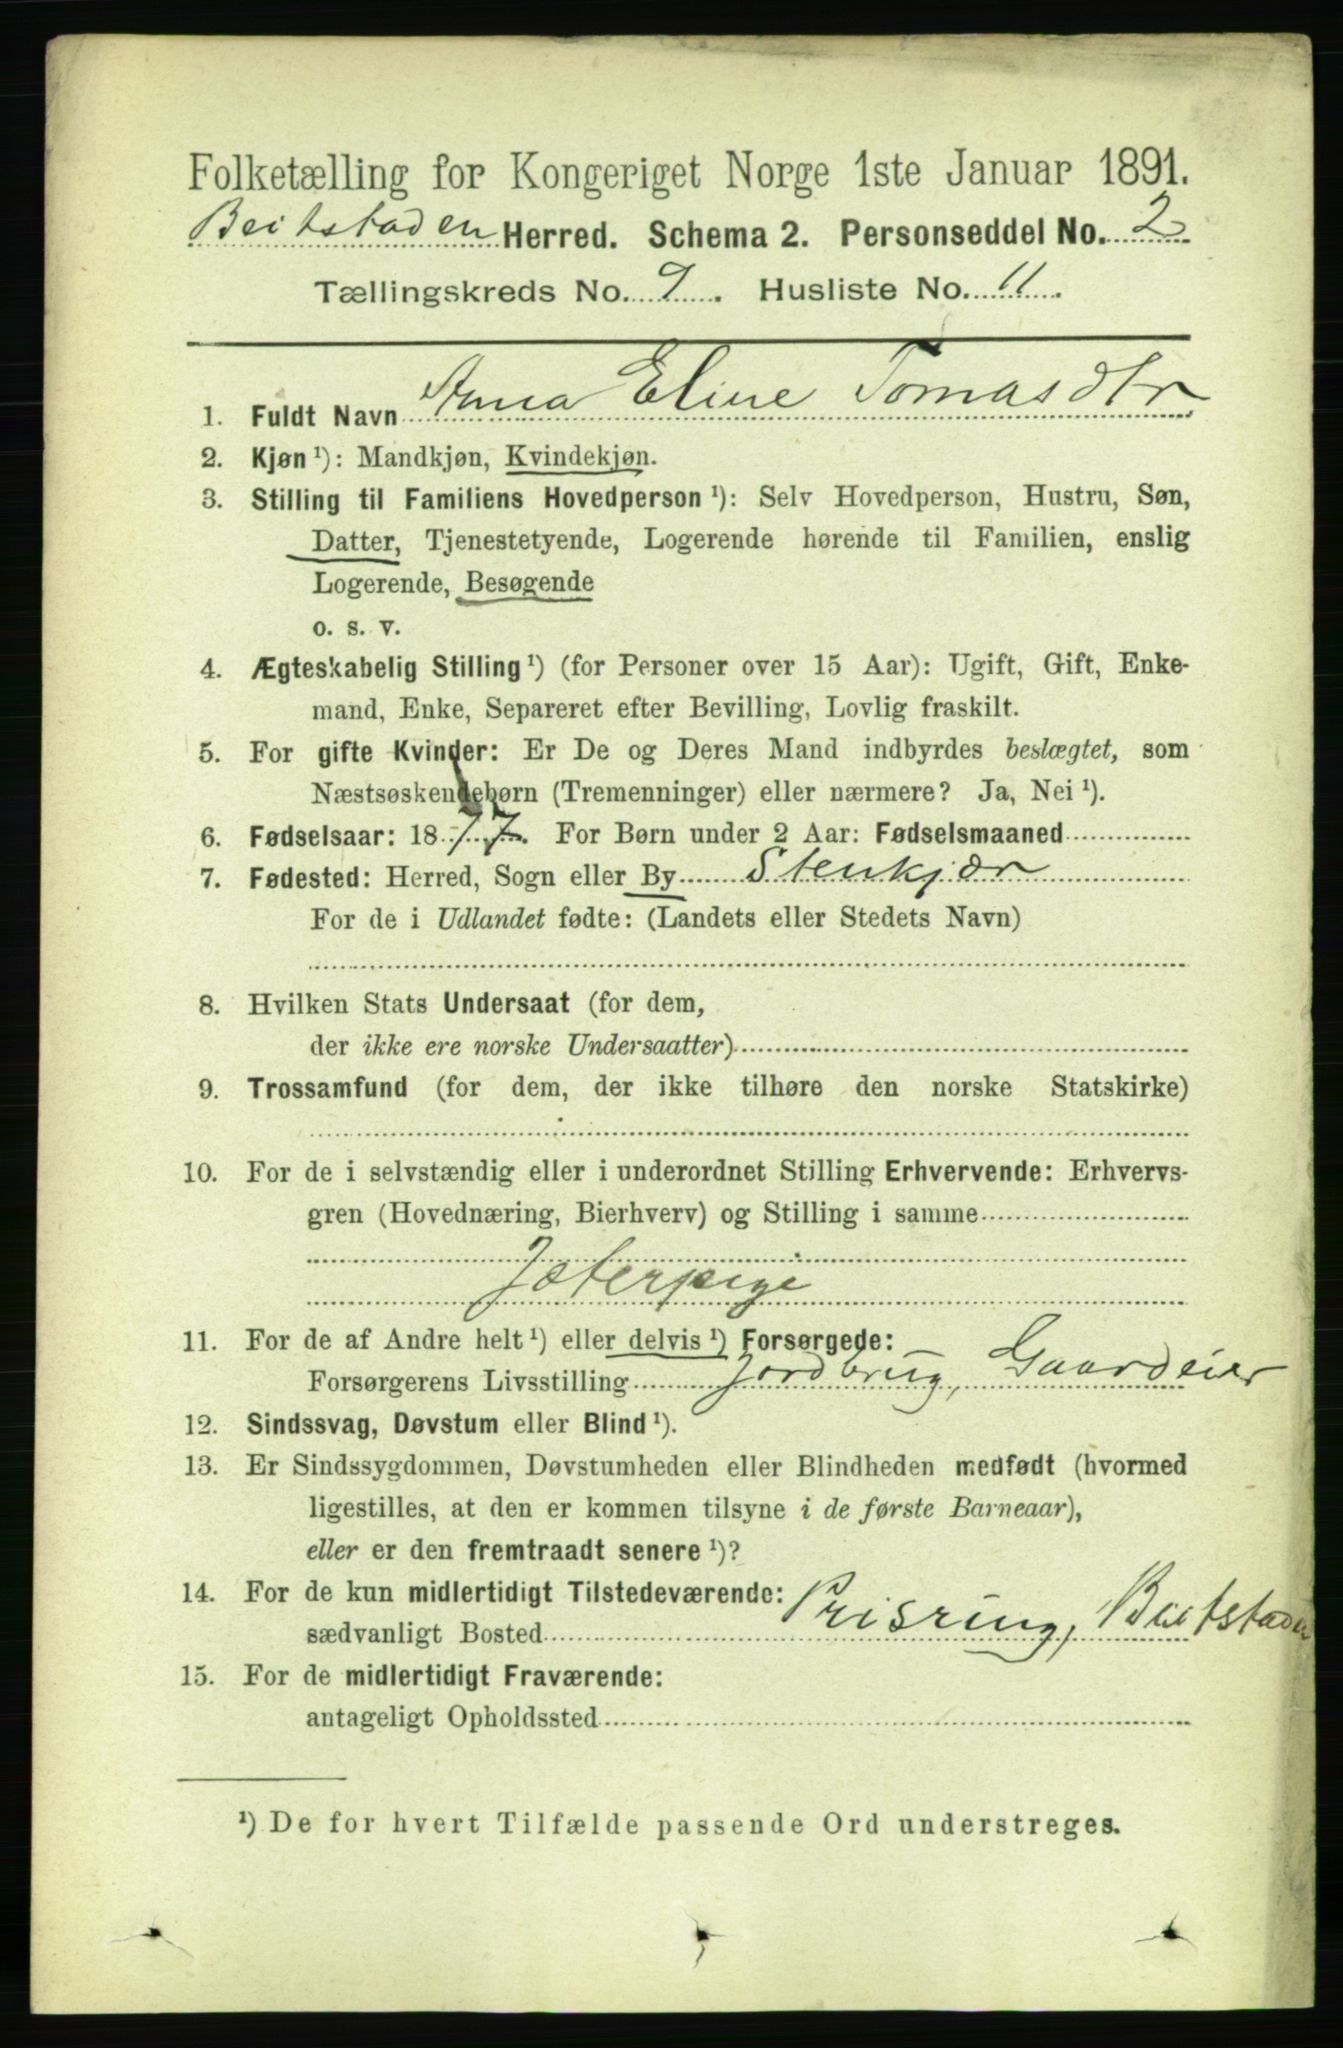 Folketælling for Kongeriget Norge 1ste Januar 1891.
Beitstaden Herred. Schema 2. Personseddel No. 2
Tællingskreds No. 9. Husliste No. 11.
1. Fuldt Navn Anna Eline Tomasdtr
2. Kjøn ¹): Mandkjøn, Kvindekjøn.
3. Stilling til Familiens Hovedperson ¹): Selv Hovedperson, Hustru, Søn,
Datter, Tjenestetyende, Logerende hørende til Familien, enslig
Logerende, Besøgende
o. s. v.
4. Ægteskabelig Stilling ¹) (for Personer over 15 Aar): Ugift, Gift, Enke-
mand, Enke, Separeret efter Bevilling, Lovlig fraskilt.
5. For gifte Kvinder: Er De og Deres Mand indbyrdes beslægtet, som
Næstsøskendebørn (Tremenninger) eller nærmere? Ja, Nei ¹).
6. Fødselsaar: 1877. For Børn under 2 Aar: Fødselsmaaned
7. Fødested: Herred, Sogn eller By Stenkjær
For de i Udlandet fødte: (Landets eller Stedets Navn)
8. Hvilken Stats Undersaat (for dem,
der ikke ere norske Undersaatter)
9. Trossamfund (for dem, der ikke tilhøre den norske Statskirke)
10. For de i selvstændig eller i underordnet Stilling Erhvervende: Erhvervs-
gren (Hovednæring, Bierhverv) og Stilling i samme
Jæterpige
11. For de af Andre helt ¹) eller delvis ¹) Forsørgede:
Forsørgerens Livsstilling Jordbrug, Gaardeier
12. Sindssvag, Døvstum eller Blind ¹).
13. Er Sindssygdommen, Døvstumheden eller Blindheden medfødt (hvormed
ligestilles, at den er kommen tilsyne i de første Barneaar),
eller er den fremtraadt senere ¹)?
14. For de kun midlertidigt Tilstedeværende:
sædvanligt Bosted Prisring, Beitstaden
15. For de midlertidigt Fraværende:
antageligt Opholdssted
¹) De for hvert Tilfælde passende Ord understreges.